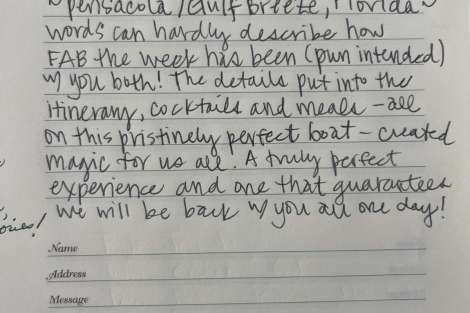 ~ Pensacola/Gulf Breeze, Florida ~
words can hardly describe how
FAB the week has been (pun intended)
w/ you both! The details put into the
itinerary, cocktails and meals - all
on this pristinely perfect boat - created
magic for us all. A truly perfect
experience and one that guarantees
we will be back w/ you all one day!
Name
Address
Message